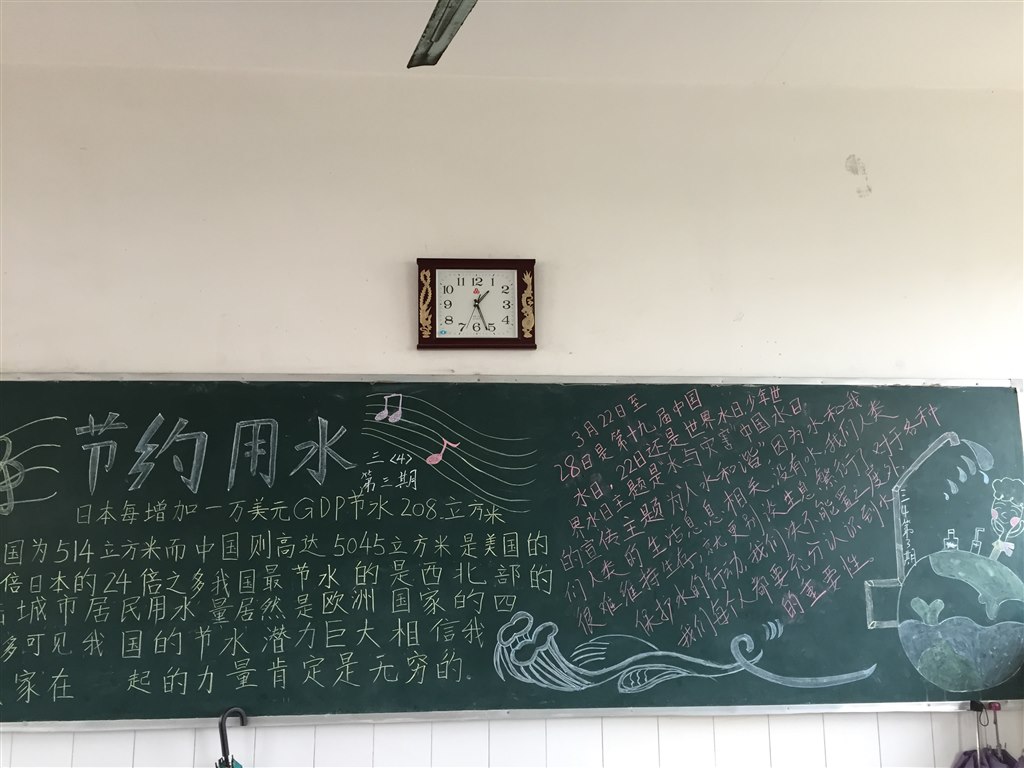 节约用水
三〈4〉
第三期
日本每增加一万美元GDP节水208立方米
国为514立方米而中国则高达5045立方米是美国的
倍日本的24倍之多我国最节水的是西北部的
城市居民用水量居然是欧洲国家的四
多可见我国的节水潜力巨大相信我
家在 起的力量肯定是无穷的。
3月22日至
28日是第十九届中国
水日,22日还是世界水日,少年世
界水日主题是水与灾害中国水日
的宣传主题为人水和谐"因为水和我
们人类的生活息息相关,没有水,我们人类
便难维持生存,就更别谈生息繁衍了,对于各种
保护水的行动,我们决不能置之度外
我们每个人需要充分认识到
的重要性
11 12 1
10 2
9 3
8 4
7 6 5